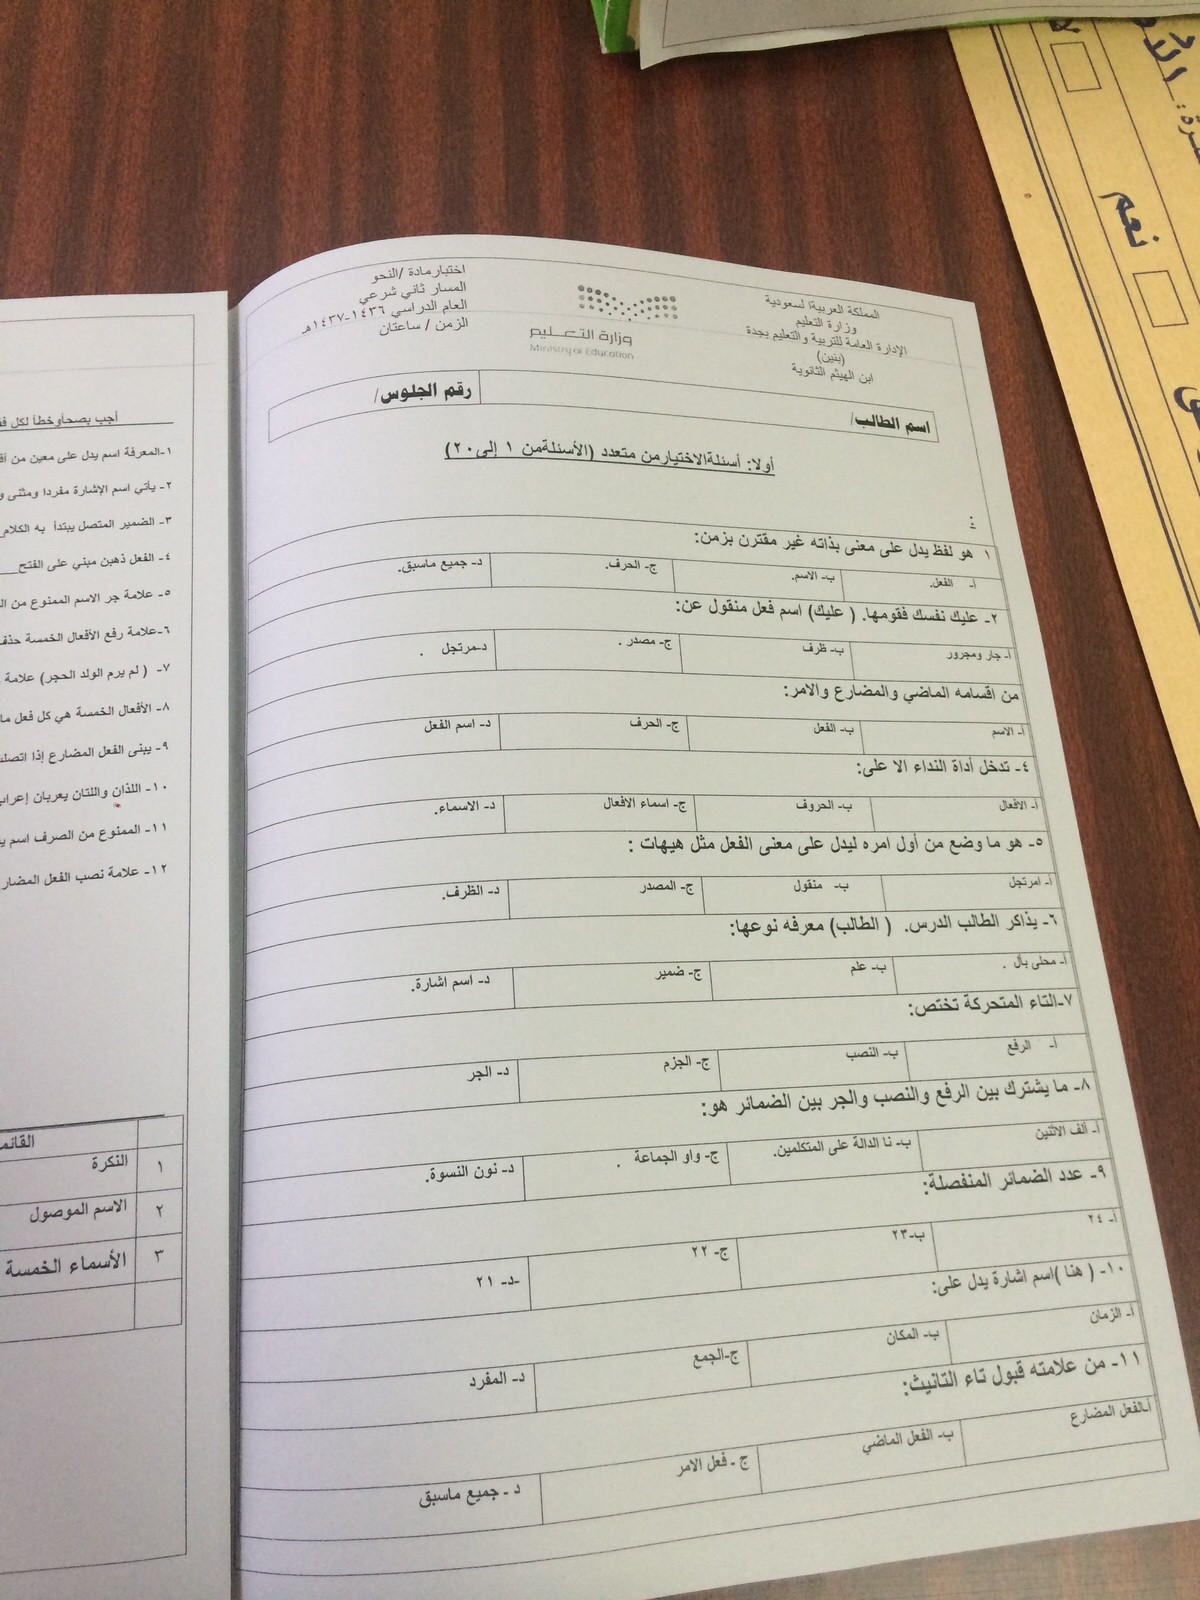 المملكة العربية السعودية
وزارة التعليم
الإدارة العامة للتربية والتعليم بجدة
(بنين)
ابن الهيثم الثانوية
وزارة التعـليم
Ministry of Education
اختبار مادة /النحو
المسار ثاني شرعي
العام الدراسي ١٤٣٦-١٤٣٧هـ
الزمن / ساعتان
اسم الطالب/
رقم الجلوس/
أولا: أسئلةالاختيارمن متعدد (الأسئلةمن ١ إلى٢٠)
:
١ هو لفظ يدل على معنى بذاته غير مقترن بزمن:
أ- الفعل. ب- الاسم. ج- الحرف. د- جميع ماسبق.
٢- عليك نفسك فقومها. ( عليك) اسم فعل منقول عن:
أ- جار ومجرور ب- ظرف ج- مصدر . د-مرتجل .
من اقسامه الماضي والمضارع والامر:
أ- الاسم ب- الفعل ج- الحرف د- اسم الفعل
٤- تدخل أداة النداء الا على:
أ- الأفعال ب- الحروف ج- اسماء الافعال د- الاسماء.
٥- هو ما وضع من أول امره ليدل على معنى الفعل مثل هيهات :
أ- امرتجل ب- منقول ج- المصدر د- الظرف.
٦- يذاكر الطالب الدرس. ( الطالب) معرفه نوعها:
أ- محلى بأل . ب- علم ج- ضمير د- اسم اشارة.
٧-التاء المتحركة تختص:
أ- الرفع ب- النصب ج- الجزم د- الجر
٨- ما يشترك بين الرفع والنصب والجر بين الضمائر هو:
أ- ألف الاثنين ب- نا الدالة على المتكلمين. ج- واو الجماعة . د- نون النسوة.
٩- عدد الضمائر المنفصلة:
أ- ٢٤ ب-٢٣ ج- ٢٢ -د- ٢١
١٠- ( هنا )اسم اشارة يدل على:
أ- الزمان ب- المكان ج-الجمع د- المفرد
١١- من علامته قبول تاء التانيث:
أ-الفعل المضارع ب- الفعل الماضي ج - فعل الامر د - جميع ماسبق
أجب بصحأوخطأ لكل
١-المعرفة اسم يدل على معين من
٢- يأتي اسم الإشارة مفردا ومثنى
٣- الضمير المتصل يبتدأ به الكلام
٤- الفعل ذهبن مبني على الفتح
٥- علامة جر الاسم الممنوع من
٦-علامة رفع الأفعال الخمسة حذف
٧- ( لم يرم الولد الحجر) علامة
٨- الأفعال الخمسة هي كل فعل
٩- يبنى الفعل المضارع إذا
١٠- اللذان واللتان يعربان
١١- الممنوع من الصرف اسم
١٢- علامة نصب الفعل
١ النكرة
٢ الاسم الموصول
٣ الأسماء الخمسة
نعم